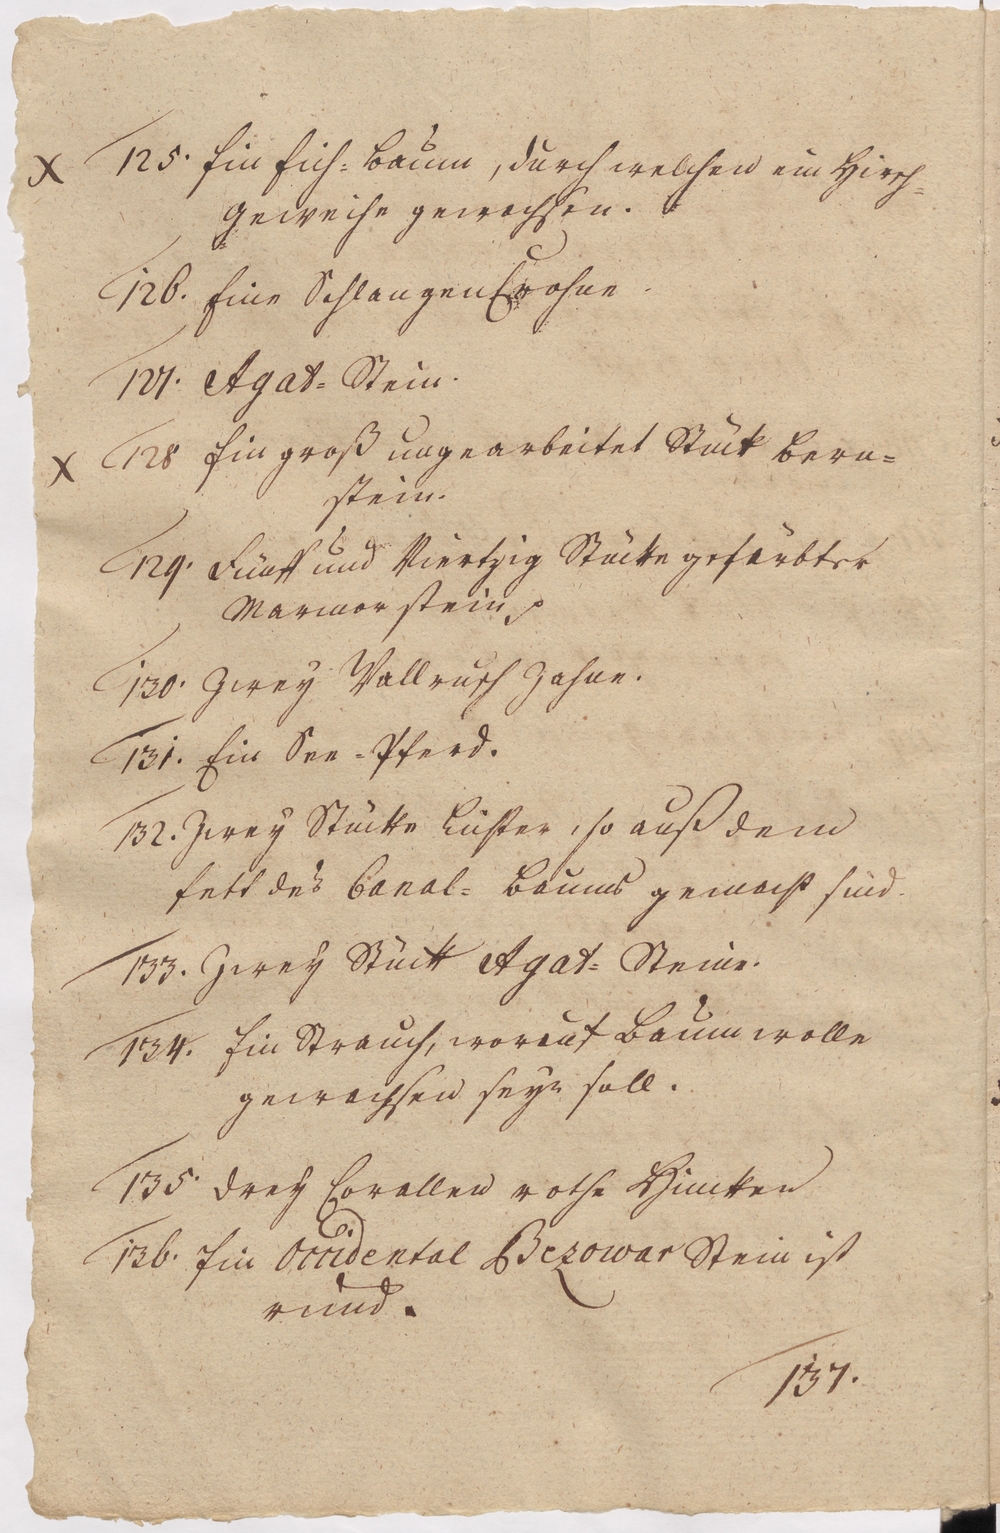 x 125. Ein Eich=Baum, durch welchen ein Hirsch=
Geweihe gewachsen.
126. Eine Schlangen Crohne.
127. Agat=Stein.
x 128 Ein groß ungearbeitet Stück Bern=
stein.
129. Fünff und Viertzig Stücke gefärbter
Marmorstein
130. Zwey Wallrusch Zahne.
131. Ein See=Pferd.
132. Zwey Stücke Lichter, so auß dem
fett des Canal=Baums gemacht sind.
133. Zwey Stück Agat=Steine.
134. Ein Strauch, worauf Baumwolle
gewachsen seyn soll.
135. Drey Corallen rothe Zincken
136. Ein Occidental Bezowar Stein ist
rund.
137.